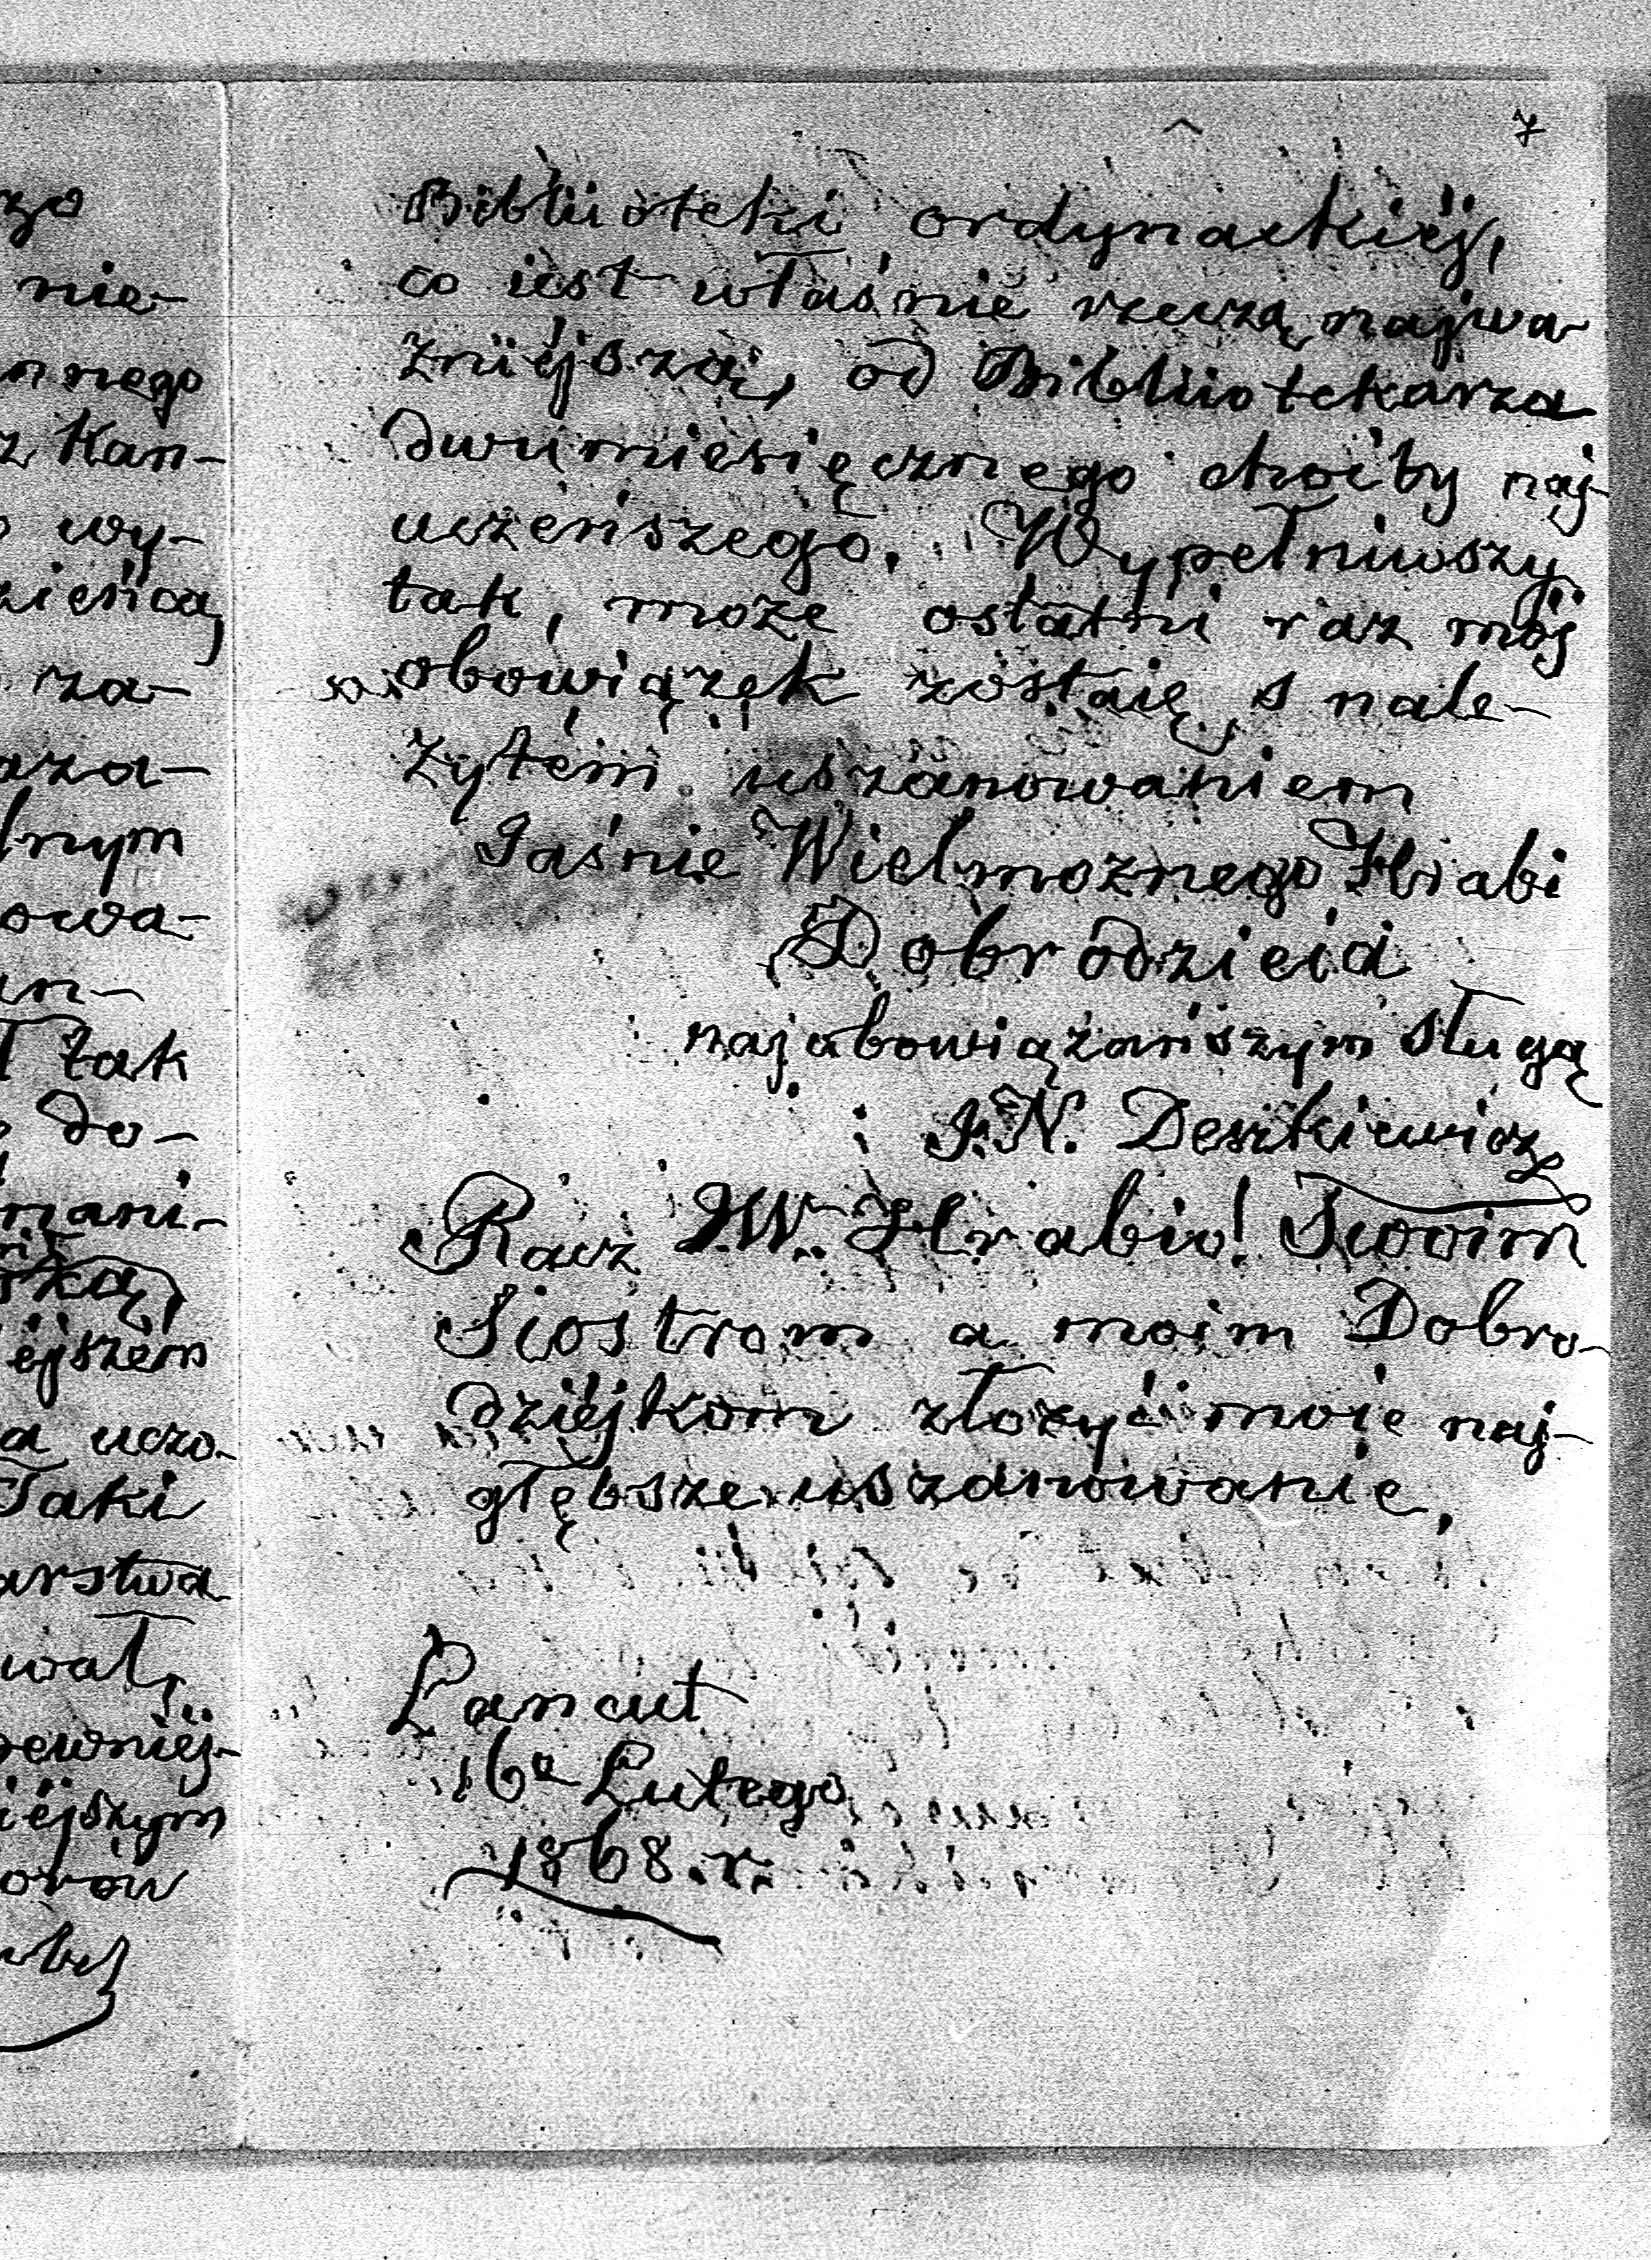 zo
nie-
nnego
z Kan-
wy-
zieńca
za-
aza-
lnym
owa-
an-
ł tak
do-
mani-
szką
iejszém
a uczo-
Taki
arstwa
wał,
pewniéj-
iéjszym
orów
7
Biblijoteki ordynackiéj,
co iest właśnie rzeczą najwa
żniéjszą, od Biblijotekarza
dwumiesięcznego choiby naj-
uczeńszego. Wypełniwszy
tak, może ostatni raz mój
obowiązek zostaię s nale-
żytém uszanowaniem
Jaśnie Wielmożnego Hrabi
Dobrodzieia
najobowiązańszym sługą
J. N. Deszkiewicz
Racz JW. Hrabio! Twoim
Siostrom a moim Dobro-
dziéjkom złożyć moie naj-
głębsze uszanowanie,
Łancut
16a Lutego
1868. r.